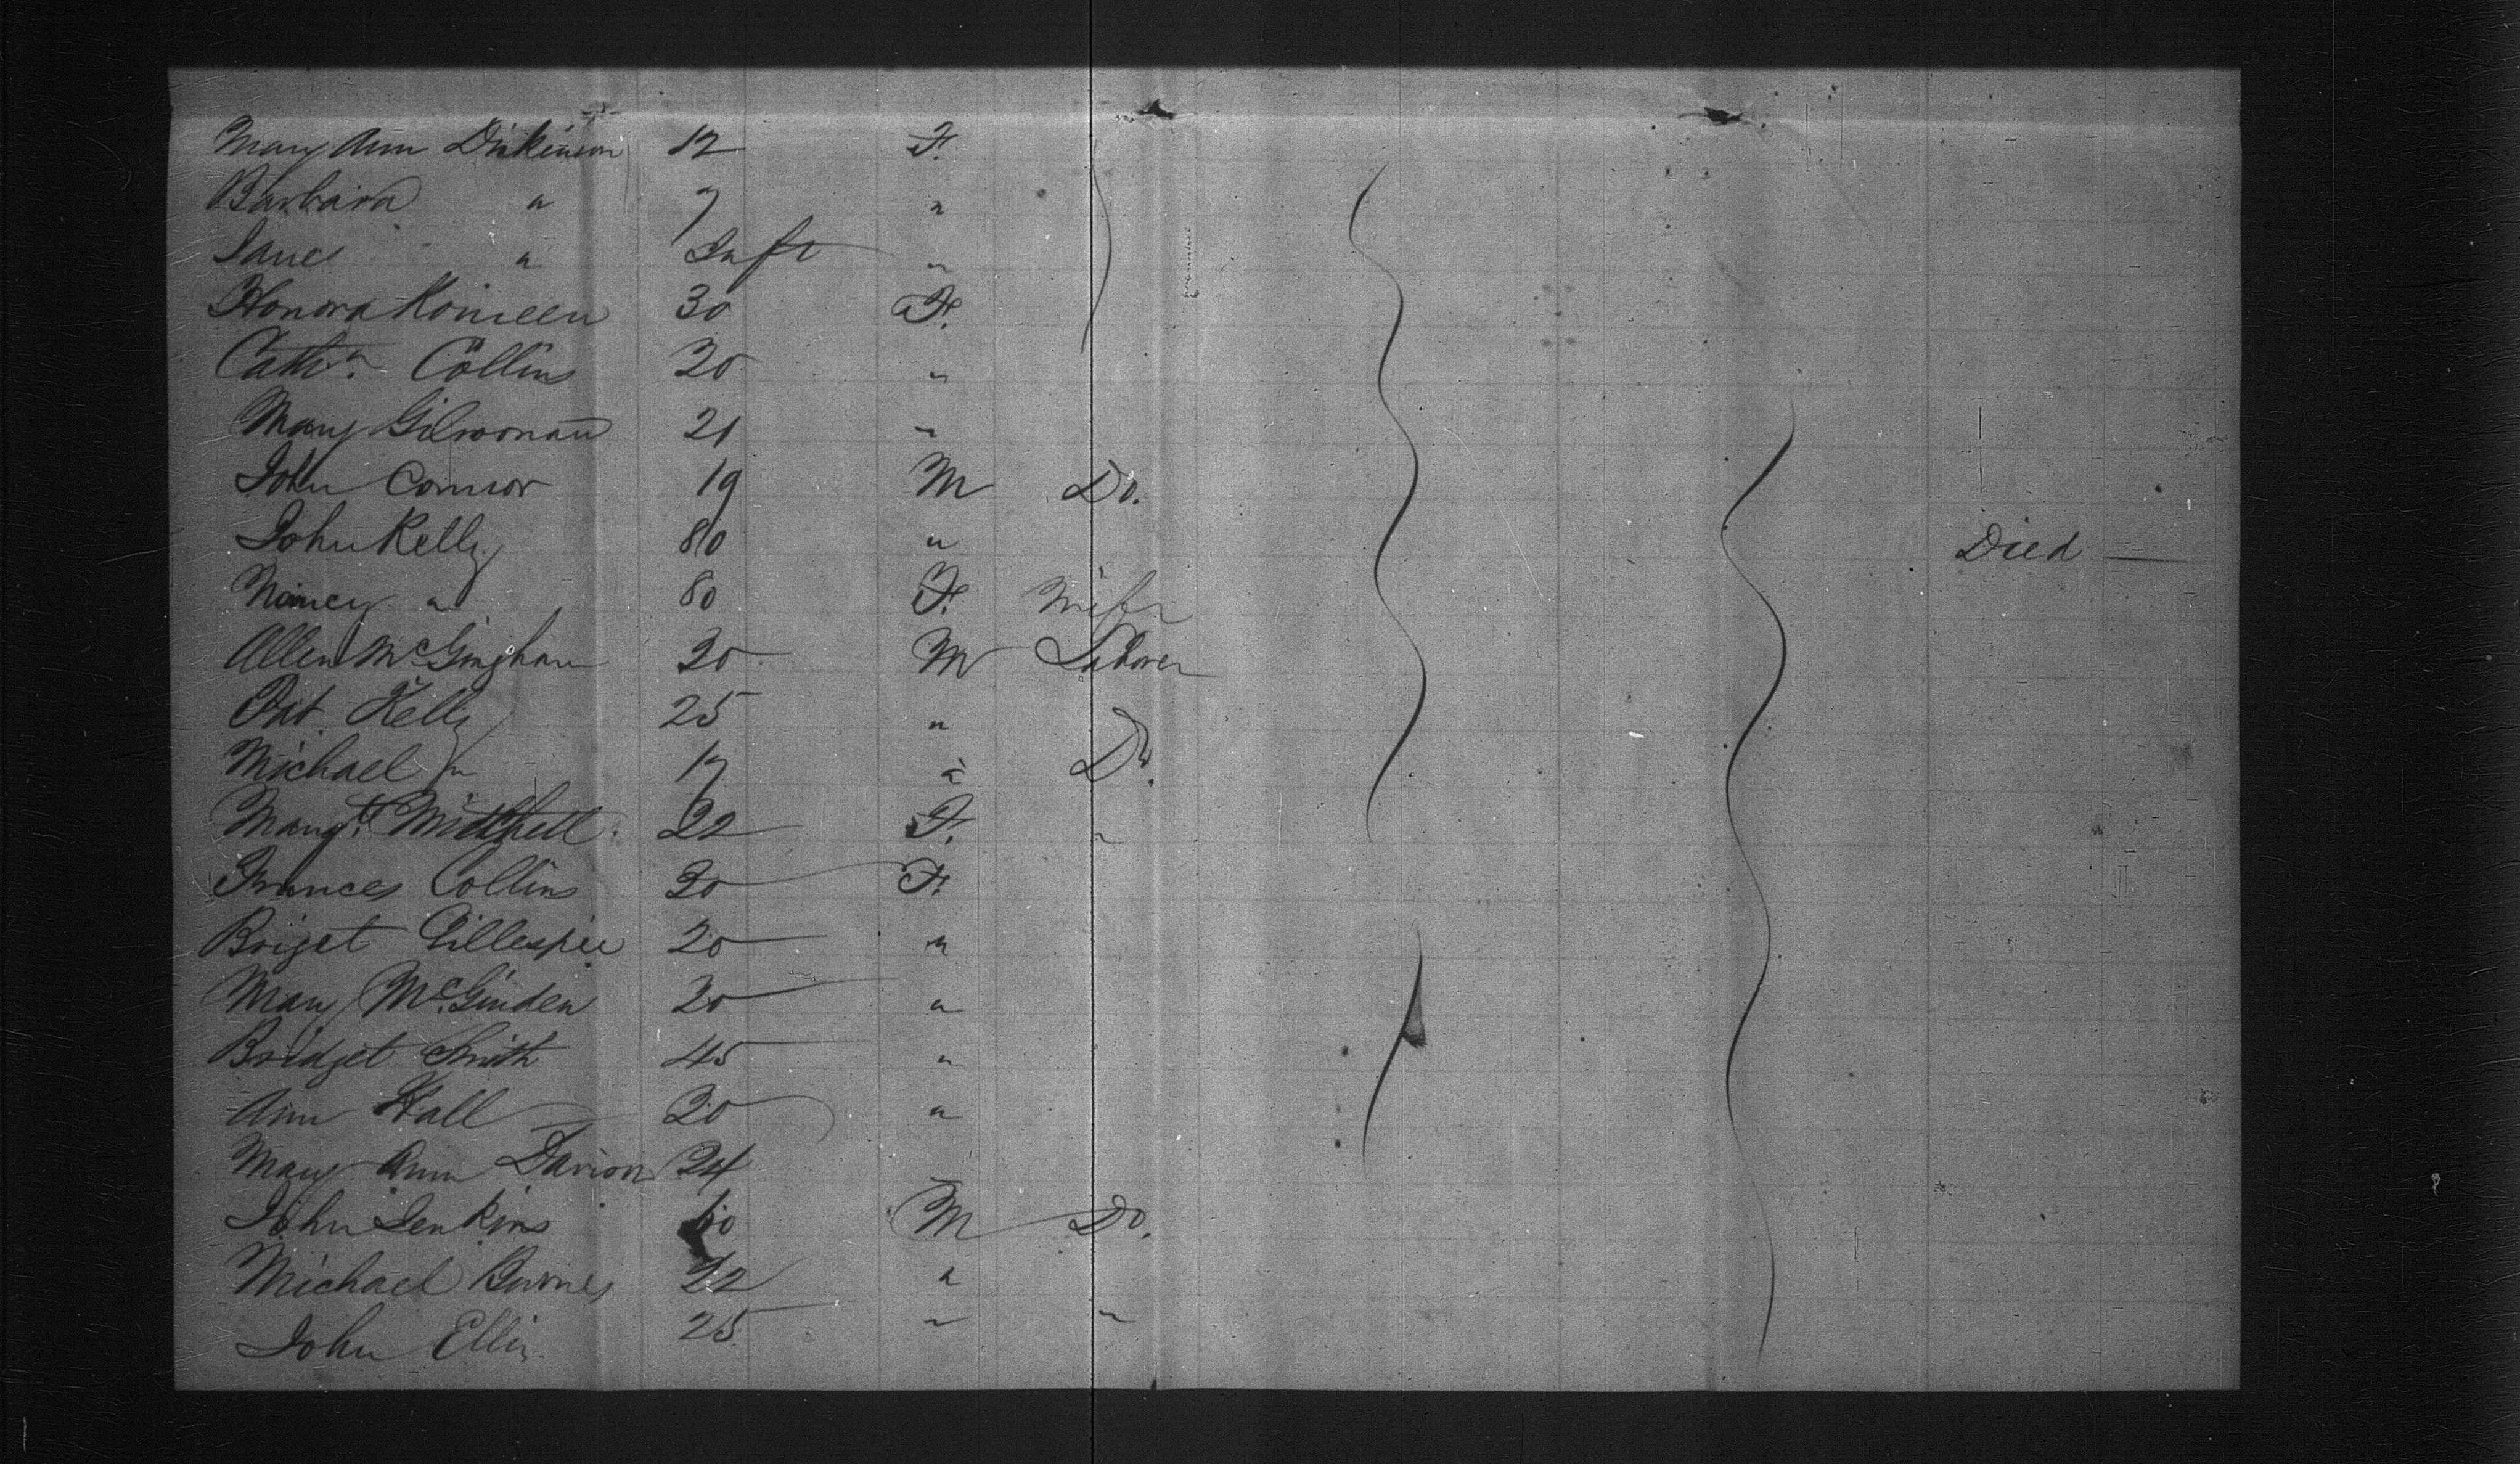 Mary Ann Dickinson 12 F.
Barbara " 7 "
Jane " Inft "
Honora Koineen 30 F.
Cathn. Collins 20 "
Mary Gilroonan 21 "
John Connor 19 M Do.
John Kelly 80 " Died
Nancy " 80 F. Wife
Allen McGingham 20 M Laborer
Pat Kelly 25 "
Michael " 17 " Do.
Margt. Mitchell 22 F. "
Frances Collins 20 F.
Briget Gillespie 20 "
Mary McGinden 20 "
Bridget Smith 45 "
Ann Hall 20 "
Mary Ann 24
John Jenkins 60 M Do.
Michael Burnes 22 "
John Ellis 25 " "